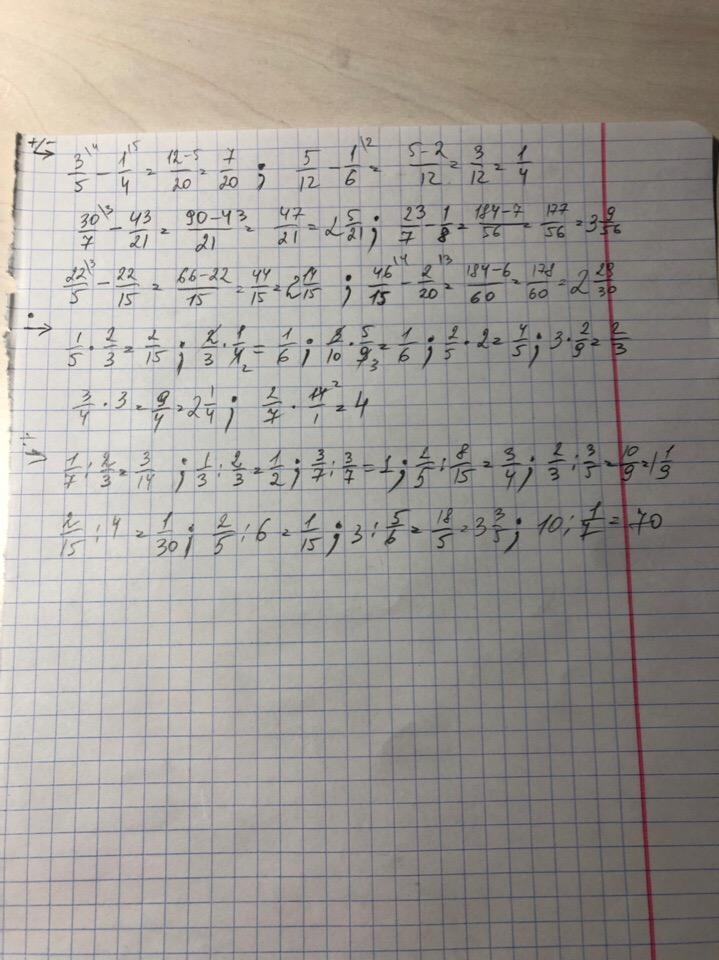 +/-
3/5\4 - 1/4\5 = (12-5)/20 = 7/20 ; 5/12 - 1/6\2 = (5-2)/12 = 3/12 = 1/4
30/7\3 - 43/21 = (90-43)/21 = 47/21 = 2 5/21 ; 23/7 - 1/8 = (184-7)/56 = 177/56 = 3 9/56
22/5\3 - 22/15 = (66-22)/15 = 44/15 = 2 14/15 ; 46/15\4 - 2/20\3 = (184-6)/60 = 178/60 = 2 29/30
1/5 · 2/3 = 2/15 ; 2/3 · 1/4 2 = 1/6 ; 3/10 · 5/9 3 = 1/6 ; 2/5 · 2 = 4/5 ; 3 · 2/9 = 2/3
3/4 · 3 = 9/4 = 2 1/4 ; 2/7 · 14/1 2 = 4
÷
1/7 : 2/3 = 3/14 ; 1/3 : 2/3 = 1/2 ; 3/7 : 3/7 = 1 ; 2/5 : 8/15 = 3/4 ; 2/3 : 3/5 = 10/9 = 1 1/9
2/15 : 4 = 1/30 ; 2/5 : 6 = 1/15 ; 3 : 5/6 = 18/5 = 3 3/5 ; 10 : 1/7 = 70